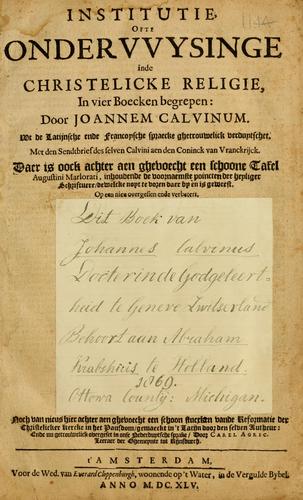 INSTITUTIE,
Ofte
ONDERVVYSINGE
inde
CHRISTELICKE RELIGIE,
In vier Boecken begrepen:
Door JOANNEM CALVINUM.
Wt de Latijnsche ende Francoysche spraecke ghetrouwelick verduytschet.
Met den Sendtbrief des selven Calvini aen den Coninck van Vranckrijck.
Daer is oock achter aen ghevoecht een schoone Tafel
Augustini Marlorati, inhoudende de voornaemste poincten der heyliger
Schrifture, dewelcke noyt te vozen daer by en is geweest.
Op een nieu overgesien ende verbetert.
Dit Boek van
Johannes Calvinus
Docter in de Godgeleert-
heid te Geneve Zwitserland
Behoort aan Abraham
Krabshuis te Holland.
1869.
Ottowa County: Michigan.
Noch van nieus hier achter aen ghevoecht een schoon stucxken vande Reformatie der
Christelicker Kercke in het Pausdom; gemaeckt in 't Latijn door den selven Autheur:
Ende nu getrouwelick overgeset in onse Nederduytsche sprake / Door CAREL AGRIC.
Leeraer der Ghemeynte tot Rijnsburch.
t'AMSTERDAM,
Voor de Wed. van Everard Cloppenburgh, woonende op 't Water, in de Vergulde Bybel.
ANNO M DC. XLV.